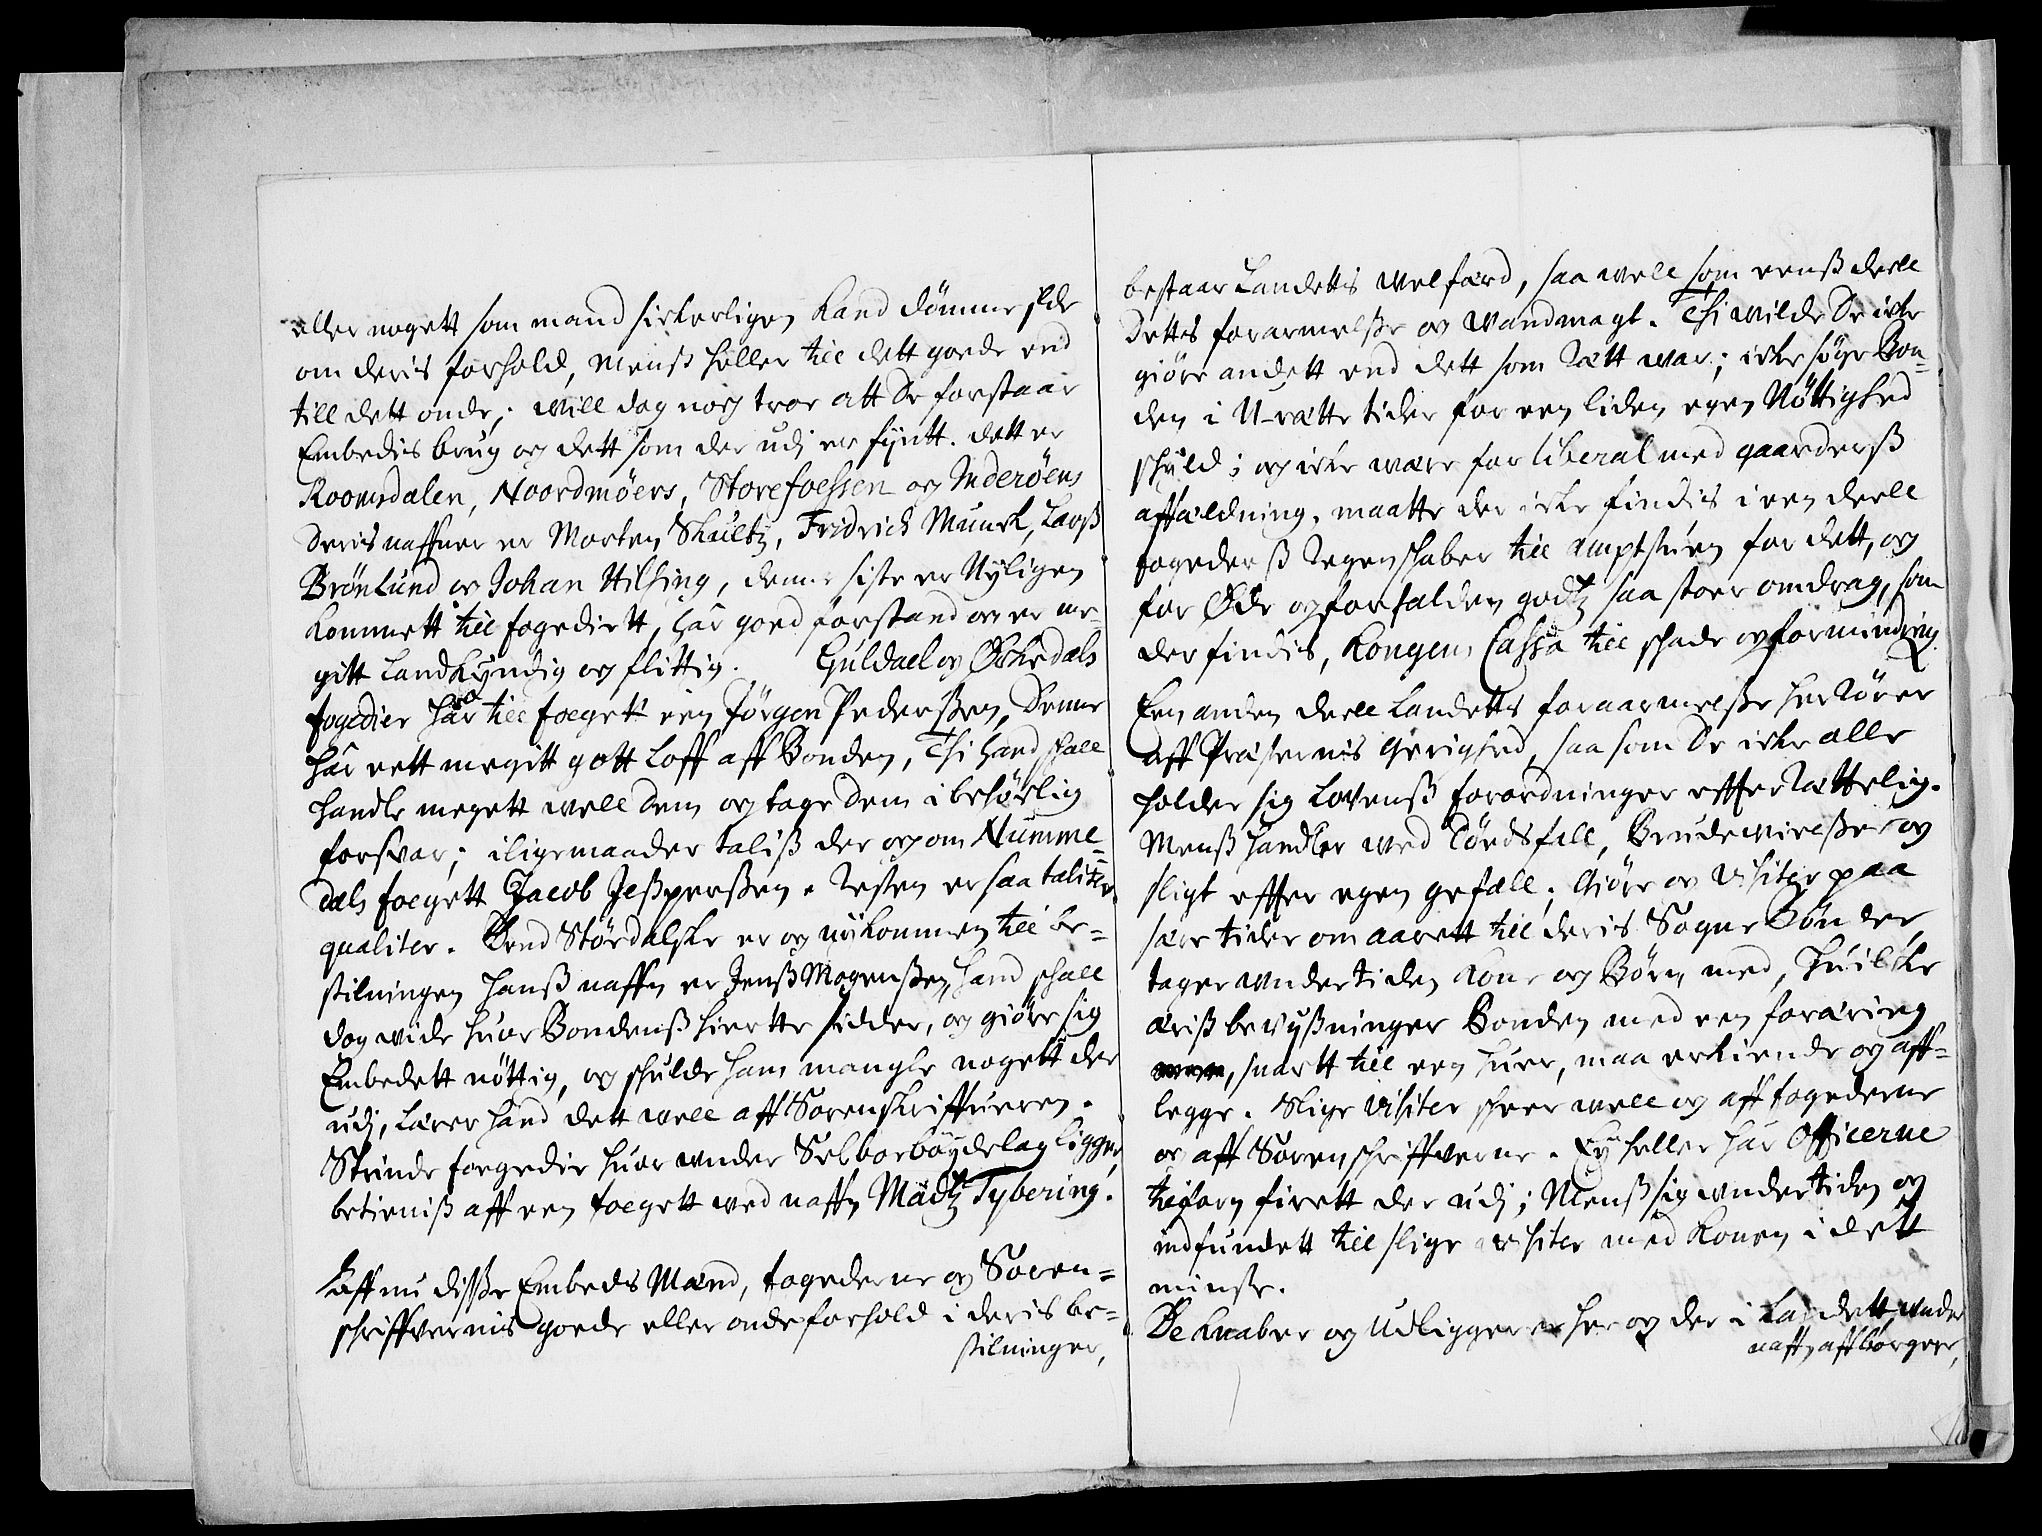 eller nogett som mand sickerligen kand dömme ilde
om deris forhold, menß heller till dett goede end
till dett onde; will dog nog troe att de forstaar
Embedis brug og dett som der udj er fynt. dett er
Roomsdalen, Noordmöers, Storefoessen og Inderöens
deris naffner er Morten Skultz, Fridrich Munck, Larß
Brönlund og Johan Hilsing, denne siste er Nyligen
kommett till fogediett, har goed forstand og er me-
gitt Landkyndig og flittig. Guldael og Örkedals
fogedier har till foegett een Jörgen Pederßen, denne
har eett megitt gott Loff aff Bonden, Thi hand skall
handle megett well dem og tage dem i behörlig
forsvar; iligemaader taliß der og om Numme-
dals foegett Jacob Jeßperßen. Resten er saa taliter
qualiter. Dend Stördalske er og nykommen till be-
stilningen hanß naffn er Jenß Mogenßen, hand skall
dog wide huor Bondenß hierte sidder, og giöre sig
Embedett nöttig, og skulde ham mangle nogett der
udj, lærer hand dett well aff Sorenskriffueren.
Strinde foegedie huor under Selboe böydelag ligger,
betieniß aff een foegett wed naffn Madtz Tybering.
Aff nu disße Embeds Mænd, fogederne og Soren-
schriffvernis goede eller onde forhold i deris be-
stilninger,
bestaar Landetts welfærd, saa well som eenß deell
detts forarmelße og Wandmagt. Thi wilde de icke
giöre andett end dett som Rett war; icke söge Bon-
den i U-rette tider for een liden egen Nöttighed
skuld; og icke være for liberal med gaarderß
affældning, maatte der icke findis i een deell
fogederß Regenskaber till amptstuen for dett, og
for Öde og forfalden godtz saa stoer omdrag, som
der findis, Kongens Cassa till skade og formindring.
Een anden deell Landetts foraarmelße her Rörer
aff Præsternis Gerighed, saa som de icke alle
holder sig Lovenß forordninger effterRettelig.
Menß handler ved Dödsfall, Brudevielßer og
sligt effter egen gefall; Giöre og Visiter paa
sære tider om aarett till deris Sogne Bönder,
tager undertiden Kone og Börn med, huilcke
æriß bevyßninger Bonden med een foræring
, snartt till een huer, maa erkiende og aff-
legge. Slige visiter skeer well og aff fogederne
og aff Sorenskriffverne. Ey heller har Officerne
tilforn firett der udj; Menß sig undertiden og
indfundett till slige visiter med Konen i dett
minste.
De Knaber og Udligger er her og der i Landett, under
naffn aff borger,